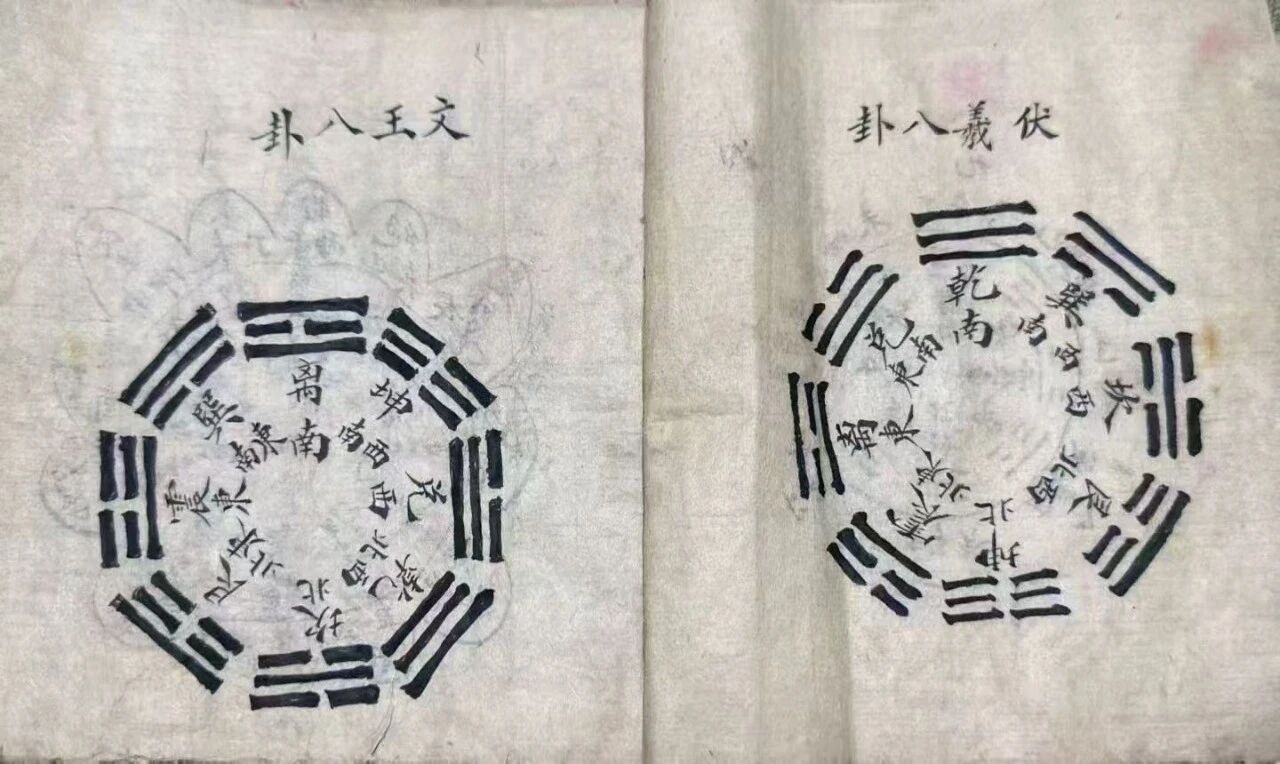 伏羲八卦
乾南
巽西南
坎西
艮西北
坤北
震東北
离東
兌東南
文王八卦
离南
坤西南
兌西
乾西北
坎北
艮東北
震東
巽東南